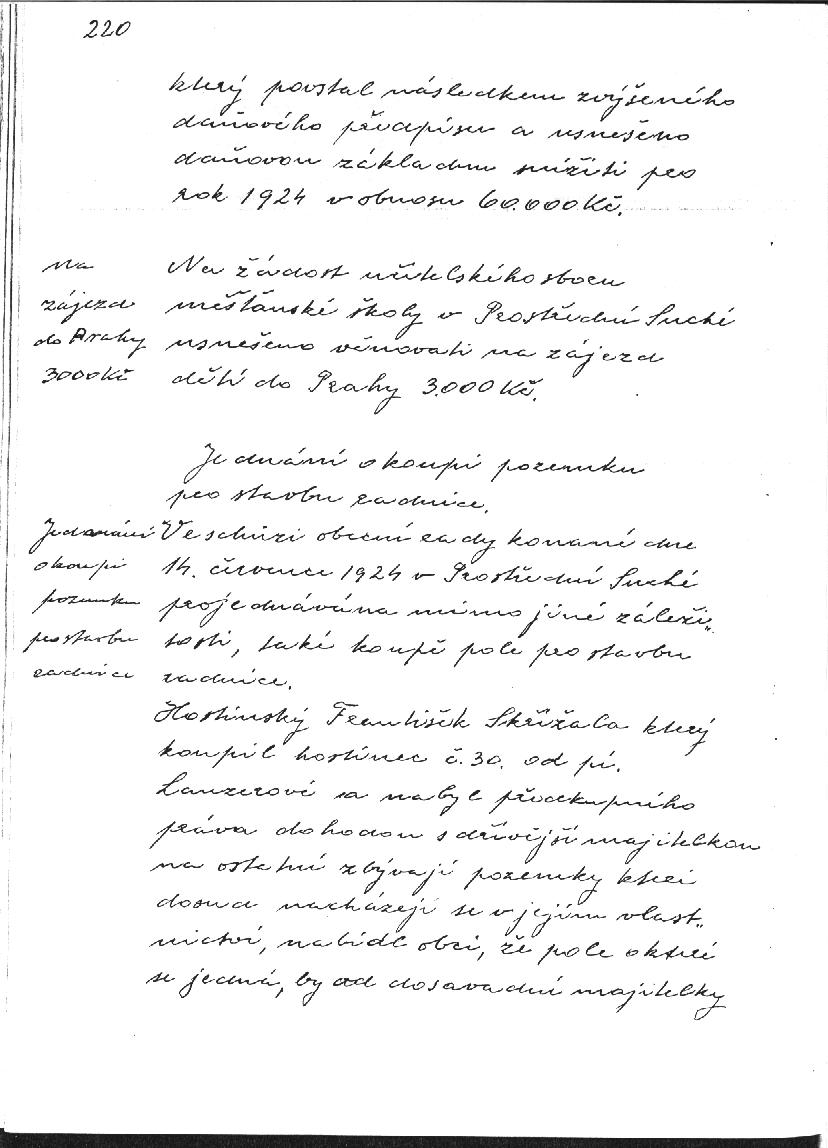 220
který povstal následkem zvýšeného
daňového předpisu a usnešeno
daňovou základnu snížiti pro
rok 1924 v obnosu 60.000 Kč.
na
zájezd
do Prahy
3000 Kč
Na žádost učitelského sboru
měšťanské školy v Prostřední Suché
usnešeno věnovati na zájezd
dětí do Prahy 3.000 Kč.
Jednání o koupi pozemku
pro stavbu radnice.
Jednání
o koupi
pozemku
pro stavbu
radnice
Ve schůzi obecní rady konané dne
14. července 1924 v Prostřední Suché
projednávána mimo jiné záleži„
tosti, také koupě pole pro stavbu
radnice.
Hostinský František Skřížala který
koupil hostinec č. 30. od pí.
Lanzerové a nabyl předkupního
práva dohodou s dřívější majitelkou
na ostatní zbývají pozemky kteří
dosud nacházejí se v jejím vlast„
nictví, nabídl obci, že pole o které
se jedná, by od dosavadní majitelky